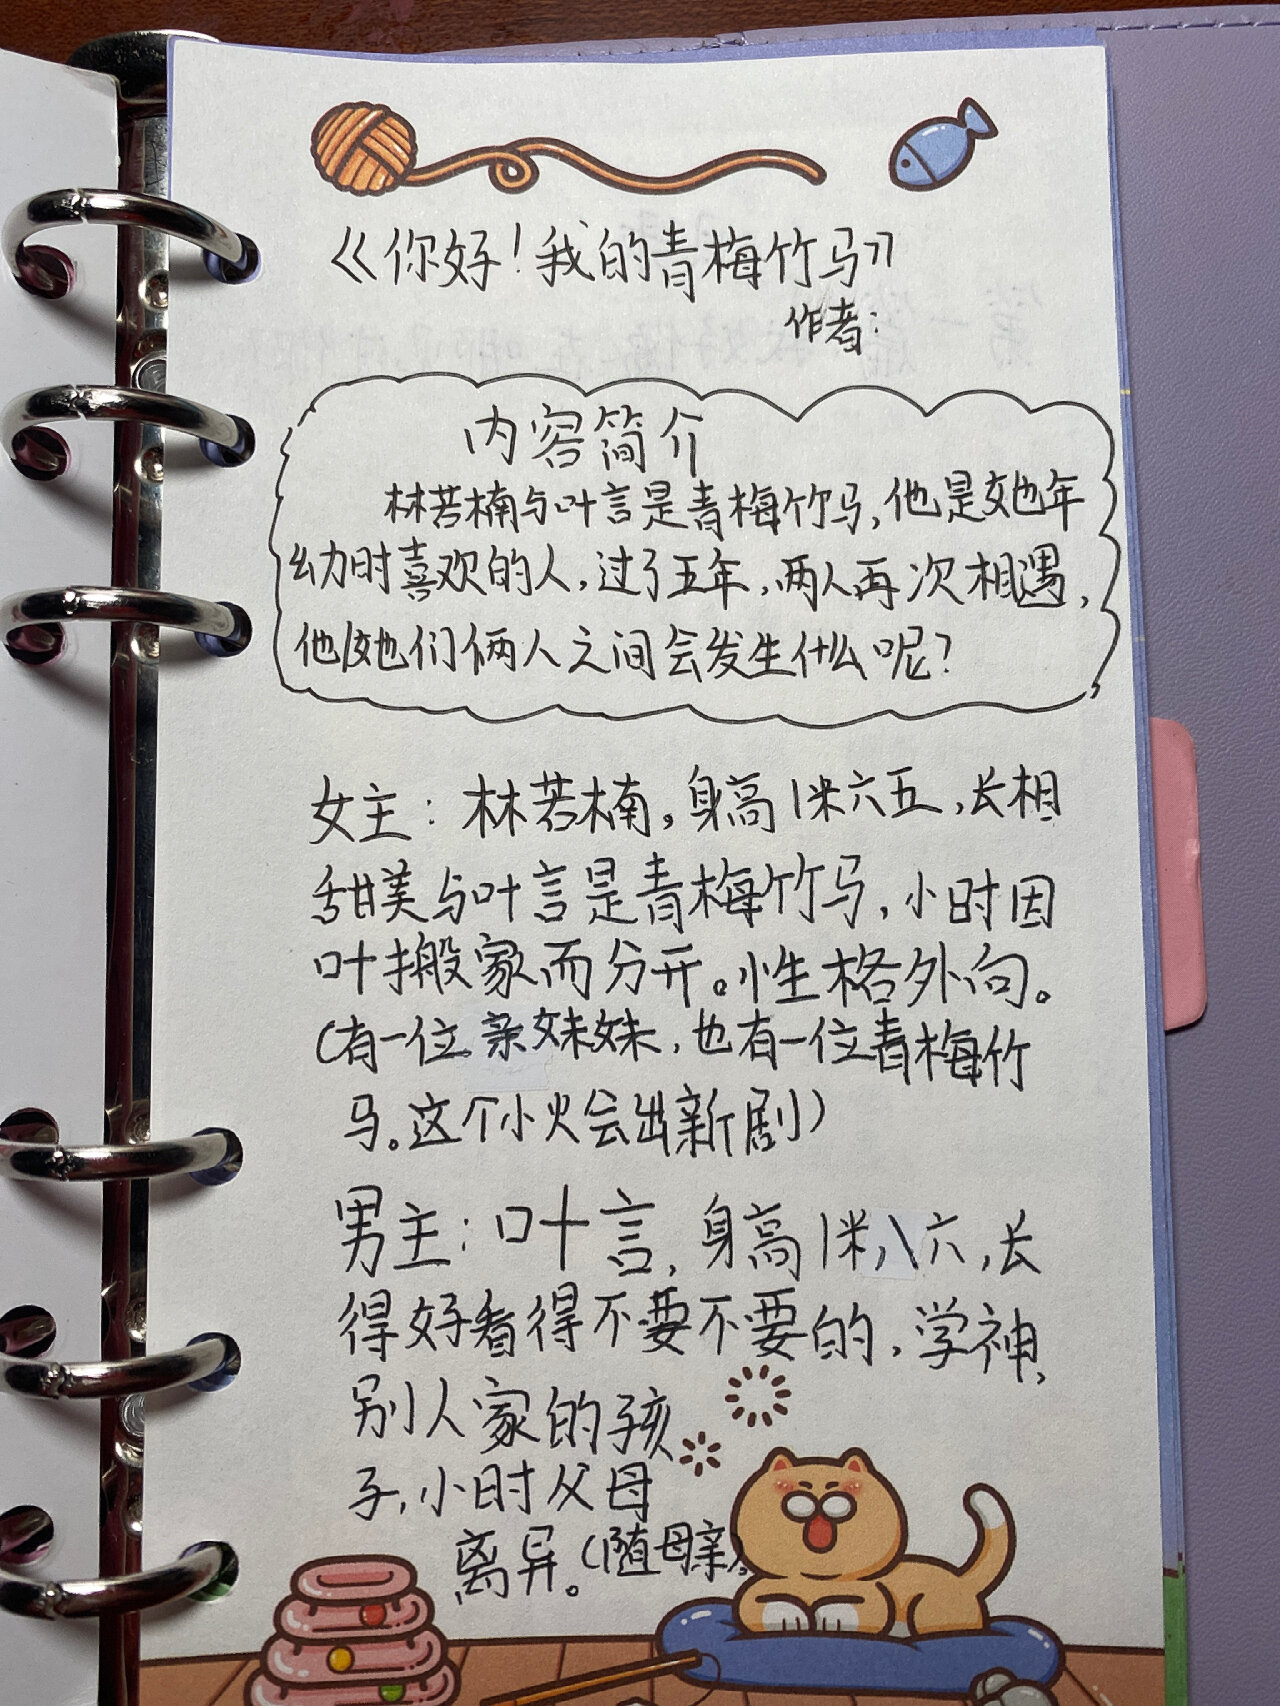 《你好！我的青梅竹马》
作者：
内容简介
林若楠与叶言是青梅竹马，他是她年
幼时喜欢的人，过了五年，两人再次相遇，
他/她们俩人之间会发生什么呢？
女主：林若楠，身高1米六五，长相
甜美与叶言是青梅竹马，小时因
叶搬家而分开。性格外向。
（有一位亲妹妹，也有一位青梅竹
马。这个小火会出新剧）
男主：叶言，身高1米八六，长
得好看得不要不要的，学神，
别人家的孩
子，小时父母
离异。（随母亲）。